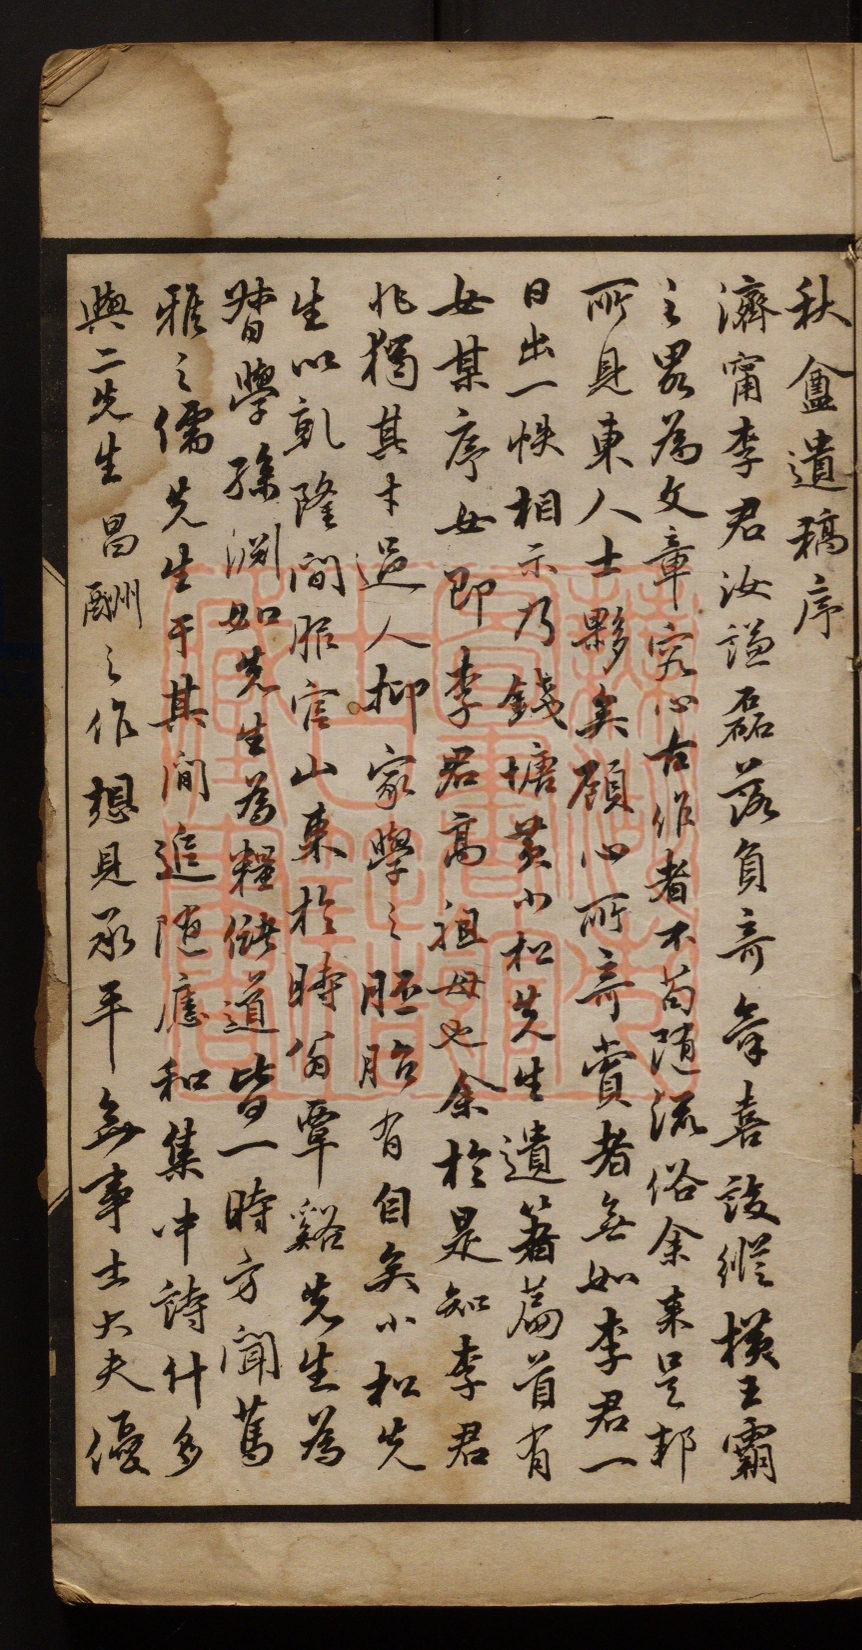 秋盦遺稿序
濟甯李君汝謙磊落負奇气喜設縱橫王霸
之畧為文章究心古作者不苟随流俗余来是邦
所見東人士夥矣顧心所奇賞者無如李君一
日出一帙相示乃錢塘黃小松先生遺著篇首有
女某序女即李君高祖母也余於是知李君
非獨其才過人抑家學之胚胎有自矣小松先
生以乹隆間服官山東於時翁覃谿先生為
督學孫淵如先生為糧儲道皆一時方聞篤
雅之儒先生于其間追随應和集中詩什多
與二先生昌酬之作想見承平無事士大夫優